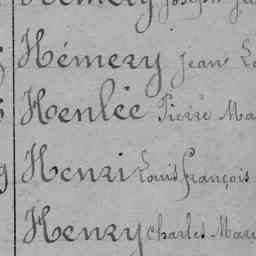 Hémery Jean
Henlée Pierre
Henri Louis François
Henry Charles